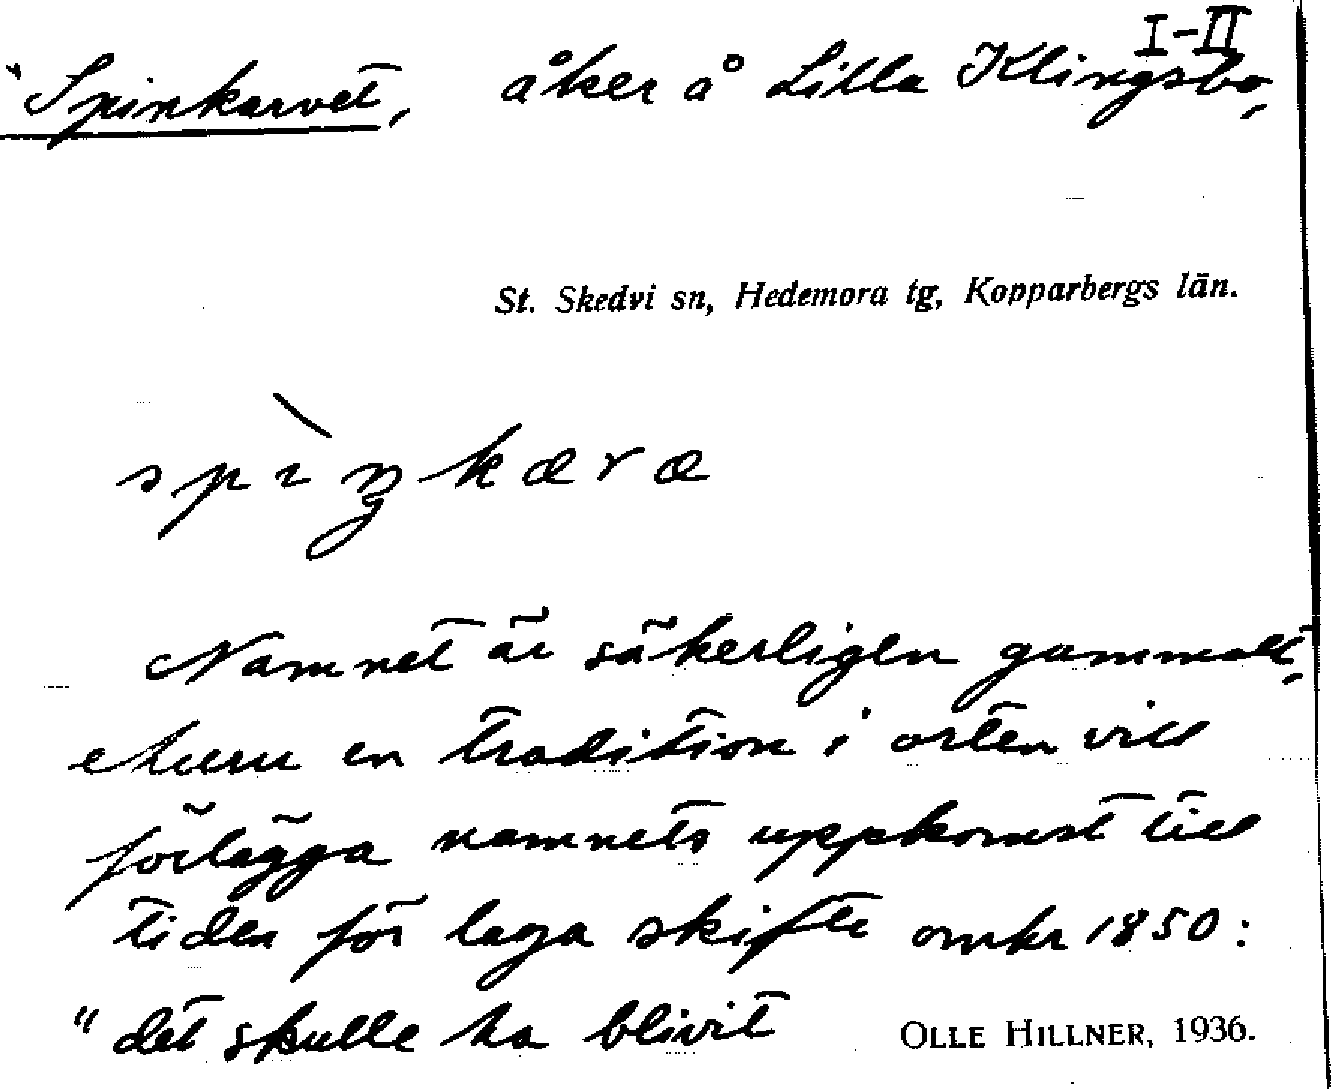 I-II
Spinkarvet, åker å Lilla Klingsbo,
St. Skedvi sn, Hedemora tg, Kopparbergs län.
spìŋkærvæ
Namnet är säkerligen gammalt,
ehuru en tradition i orten vill
förlägga namnets uppkomst till
tiden för laga skifte omkr 1850:
"det skulle ha blivit
OLLE HILLNER, 1936.